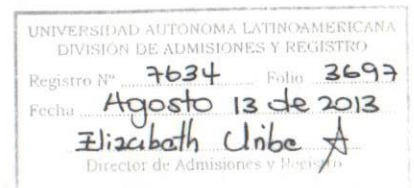 UNIVERSIDAD AUTONOMA LATINOAMERICANA
DIVISIÓN DE ADMISIONES Y REGISTRO
Registro Nº 7634 Folio 3697
Fecha Agosto 13 de 2013
Elizabeth Uribe A
Director de Admisiones y Registro